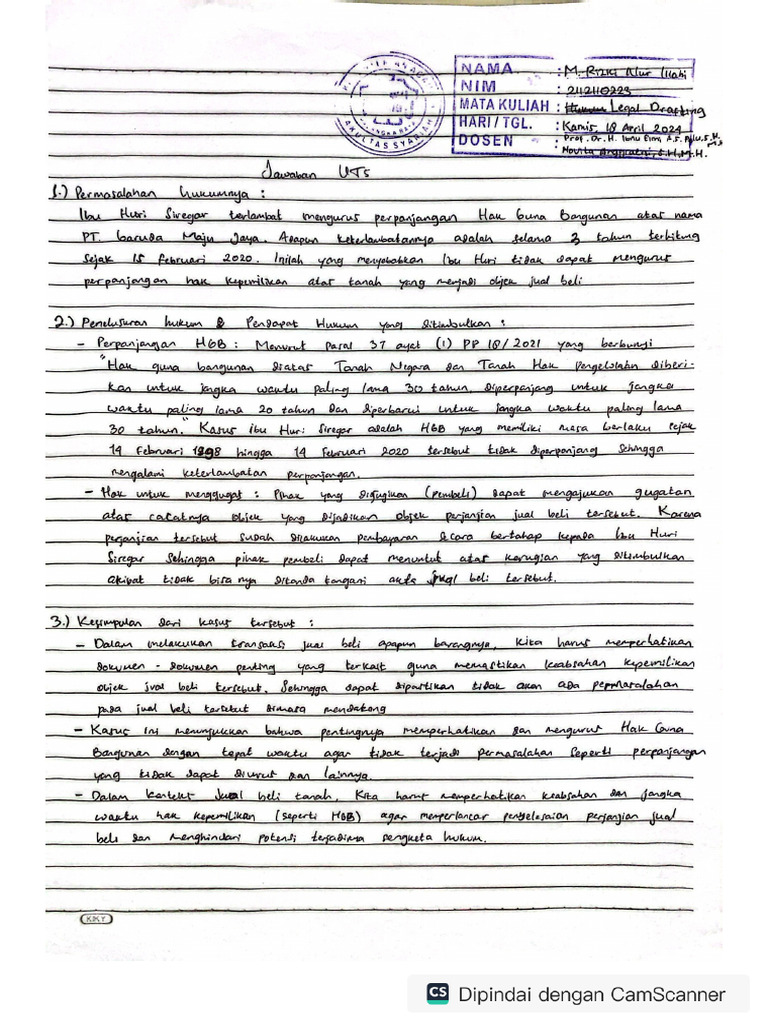 NAMA : M. Rizki Nur
NIM : 2112110223
MATA KULIAH : Legal Drafting
HARI / TGL. : Kamis, 18 April 2024
DOSEN : Prof. Dr. H. Ibnu S.H.
S.H, M.H.
FAKULTAS SYARIAH
Jawaban UTS
1.) Permasalahan hukumnya :
Ibu Huri Siregar terlambat mengurus perpanjangan Hak Guna Bangunan atas nama
PT. Garuda Maju Jaya. Adapun keterlambatannya adalah selama 3 tahun terhitung
sejak 15 Februari 2020. Inilah yang menyebabkan Ibu Huri tidak dapat mengurus
perpanjangan hak kepemilikan atas tanah yang menjadi objek jual beli
2.) Penelusuran hukum & Pendapat Hukum yang ditimbulkan :
- Perpanjangan HGB : Menurut Pasal 37 ayat (1) PP 18/2021 yang berbunyi
"Hak guna bangunan diatas Tanah Negara dan Tanah Hak Pengelolaan diberi-
kan untuk jangka waktu paling lama 30 tahun, diperpanjang untuk jangka
waktu paling lama 20 tahun dan diperbarui untuk jangka waktu paling lama
30 tahun." Kasus ibu Huri Siregar adalah HGB yang memiliki masa berlaku sejak
14 Februari 1998 hingga 14 Februari 2020 tersebut tidak diperpanjang sehingga
mengalami keterlambatan perpanjangan.
- Hak untuk menggugat : Pihak yang dirugikan (pembeli) dapat mengajukan gugatan
atas cacatnya objek yang dijadikan objek perjanjian jual beli tersebut. Karena
perjanjian tersebut sudah dilakukan pembayaran secara bertahap kepada Ibu Huri
Siregar sehingga pihak pembeli dapat menuntut atas kerugian yang ditimbulkan
akibat tidak bisa nya ditanda tangani akta jual beli tersebut.
3.) Kesimpulan dari kasus tersebut :
- Dalam melakukan transaksi jual beli apapun barangnya, kita harus memperhatikan
dokumen - dokumen penting yang terkait guna memastikan keabsahan kepemilikan
objek jual beli tersebut. Sehingga dapat dipastikan tidak akan ada permasalahan
pada jual beli tersebut dimasa mendatang
- Kasus ini menunjukkan bahwa pentingnya memperhatikan dan mengurus Hak Guna
Bangunan dengan tepat waktu agar tidak terjadi permasalahan seperti perpanjangan
yang tidak dapat diurus dan lainnya.
- Dalam konteks jual beli tanah, kita harus memperhatikan keabsahan dan jangka
waktu hak kepemilikan (seperti HGB) agar memperlancar penyelesaian perjanjian jual
beli dan menghindari potensi terjadinya sengketa hukum.
KKY
CS Dipindai dengan CamScanner